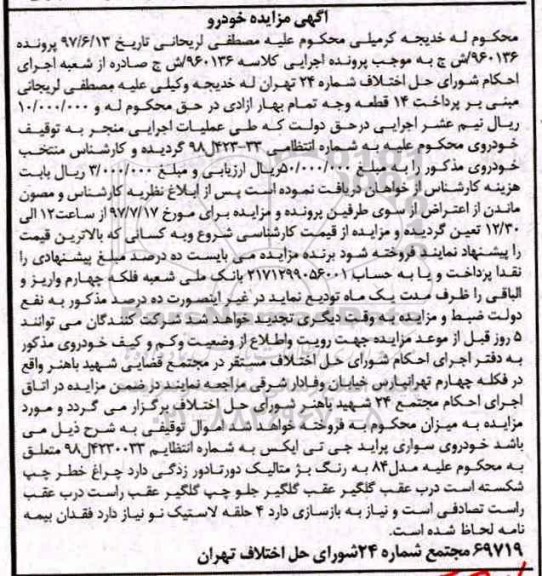 آگهی مزایده خودرو
محکوم له خدیجه کرمیلی محکوم علیه مصطفی لریجانی تاریخ ۹۷/۶/۱۳ پرونده
۹۶۰۱۳۶/ش ج به موجب پرونده اجرایی کلاسه ۹۶۰۱۳۶/ش ج صادره از شعبه اجرای
احکام شورای حل اختلاف شماره ۲۴ تهران له خدیجه وکیلی علیه مصطفی لریجانی
مبنی بر پرداخت ۱۴ قطعه وجه تمام بهار آزادی در حق محکوم له و ۱۰/۰۰۰/۰۰۰
ریال نیم عشر اجرایی درحق دولت که طی عملیات اجرایی منجر به توقیف
خودروی محکوم علیه به شماره انتظامی ۳۳-۴۲۳ل۹۸ گردیده و کارشناس منتخب
خودروی مذکور را به مبلغ ۵۰/۰۰۰/۰۰۰ریال ارزیابی و مبلغ ۳/۰۰۰/۰۰۰ ریال بابت
هزینه کارشناس از خواهان دریافت نموده است پس از ابلاغ نظریه کارشناس و مصون
ماندن از اعتراض از سوی طرفین پرونده و مزایده برای مورخ ۹۷/۷/۱۷ از ساعت۱۲ الی
۱۲/۳۰ تعین گردیده و مزایده از قیمت کارشناسی شروع وبه کسانی که بالاترین قیمت
را پیشنهاد نمایند فروخته شود برنده مزایده می بایست ده درصد مبلغ پیشنهادی را
نقدا پرداخت و یا به حساب ۲۱۷۱۲۹۹۰۵۶۰۰۱ بانک ملی شعبه فلکه چهارم واریز و
الباقی را ظرف مدت یک ماه تودیع نماید در غیر اینصورت ده درصد مذکور به نفع
دولت ضبط و مزایده به وقت دیگری تجدید خواهد شد شرکت کنندگان می توانند
۵ روز قبل از موعد مزایده جهت رویت واطلاع از وضعیت وکم و کیف خودروی مذکور
به دفتر اجرای احکام شورای حل اختلاف مستقر در مجتمع قضایی شهید باهنر واقع
در فکله چهارم تهرانپارس خیابان وفادار شرقی مراجعه نمایند در ضمن مزایده در اتاق
اجرای احکام مجتمع ۲۴ شهید باهنر شورای حل اختلاف برگزار می گردد و مورد
مزایده به میزان محکوم به فروخته خواهد شد اموال توقیفی به شرح ذیل می
باشد خودروی سواری پراید جی تی ایکس به شماره انتظایم ۴۲۳۰۰۳۳ل۹۸ متعلق
به محکوم علیه مدل۸۴ به رنگ بژ متالیک دورتادور زدگی دارد چراغ خطر چپ
شکسته است درب عقب گلگیر عقب گلگیر جلو چپ گلگیر عقب راست درب عقب
راست تصادفی است و نیاز به بازسازی دارد ۴ حلقه لاستیک نو نیاز دارد فقدان بیمه
نامه لحاظ شده است.
۶۹۷۱۹ مجتمع شماره ۲۴شورای حل اختلاف تهران